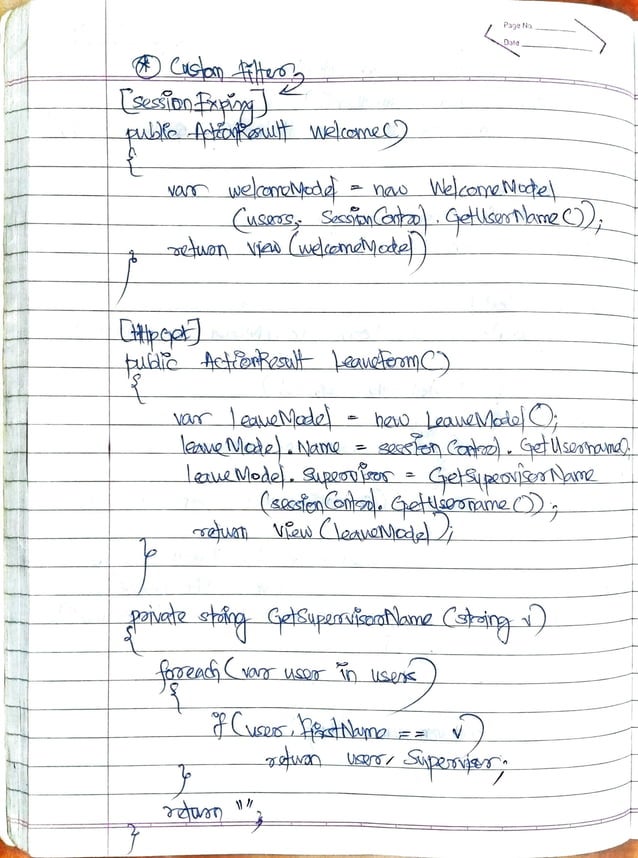 Page No.
Date
* Custom filters
[SessionExpiring]
public ActionResult Welcome()
{
var welcomeModel = new WelcomeModel
(users, SessionControl.GetUserName());
return view (welcomeModel)
}
[HttpGet]
public ActionResult LeaveForm()
{
var leaveModel = new LeaveModel();
leaveModel.Name = sessionControl.GetUsername()
leaveModel.Supervisor = GetSupervisorName
(sessionControl.GetUsername());
return View (leaveModel);
}
private string GetSupervisorName (string v)
{
foreach (var user in users)
{
if (user.FirstName == v)
return user.Supervisor;
}
return "";
}